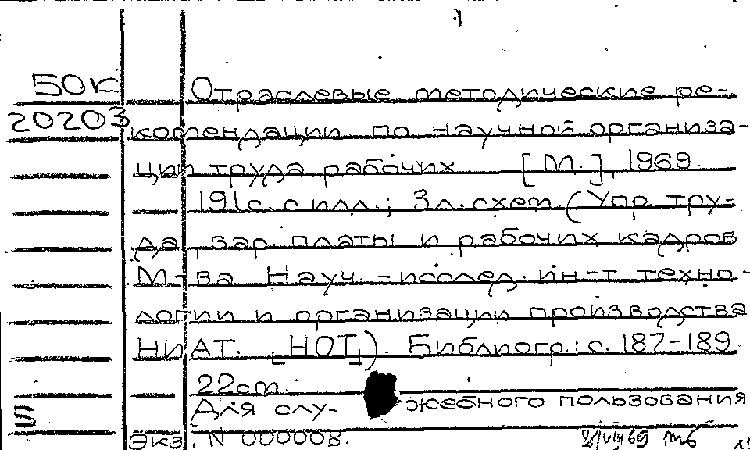 50к Отраслевые методические ре-
20203 комендации по научной организа-
ции труда рабочих [М.], 1969.
191с. с илл.; 3л. схем (Упр. тру-
да, зар. платы и рабочих кадров
М-ва Науч.-исслед. ин-т техно-
логии и организации производства
НИАТ. [НОТ]) Библиогр.: с. 187-189.
22см.
Для слу- жебного пользования
Экз. N 000008.